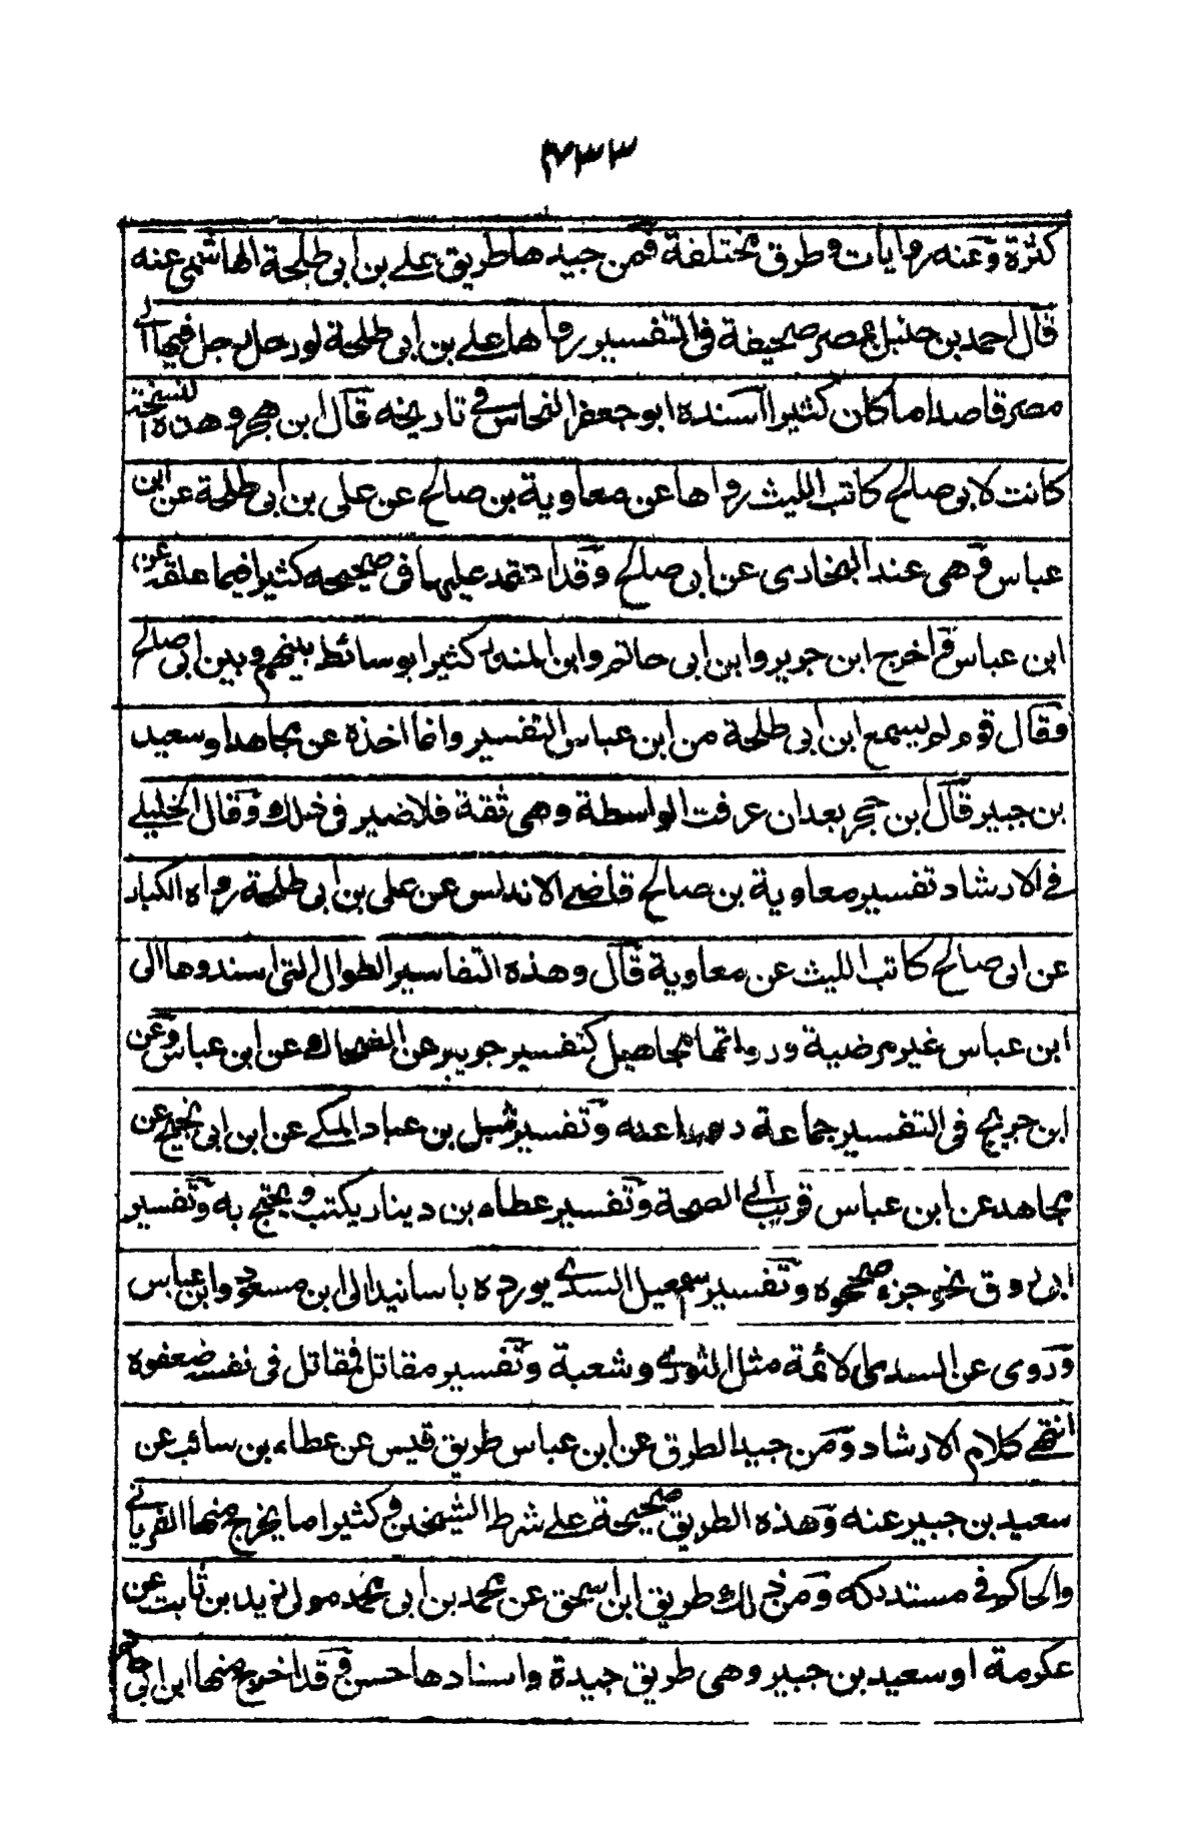 ٤٣٣
كثرة وعنه روايات وطرق مختلفة فمن جيدها طريق علي بن ابى طلحة الهاشمى عنه
قال احمد بن حنبل بمصر صحيفة فى التفسير رواها علي بن ابى طلحة لو رحل رجل فيها الى
مصر قاصدا ما كان كثيرا اسنده ابو جعفر النحاس في تاريخه قال ابن حجر وهذه النسخة
كانت لابى صالح كاتب الليث رواها عن معاوية بن صالح عن على بن ابى طلحة عن ابن
عباس وهى عند البخارى عن ابى صالح وقد اعتمد عليها فى صحيحه كثيرا فيما علقه عن
ابن عباس واخرج ابن جرير وابن ابى حاتم وابن المنذر كثيرا بوسائط بينهم وبين ابى صالح
فقال قوم لم يسمع ابن ابى طلحة من ابن عباس التفسير وانما اخذه عن مجاهد او سعيد
بن جبير قال ابن حجر بعد ان عرفت الواسطة وهى ثقة فلا ضير فى ذلك وقال الخليلے
في الارشاد تفسير معاوية بن صالح قاضے الاندلس عن على بن ابى طلحة رواه الكبار
عن ابى صالح كاتب الليث عن معاوية قال وهذه التفاسير الطوال التى اسندوها الى
ابن عباس غير مرضية ورواتها مجاهيل كتفسير جويبر عن الضحاك عن ابن عباس وعن
ابن جريج فى التفسير جماعة رووا عنه وتفسير شبل بن عباد المكے عن ابن ابى نجيح عن
مجاهد عن ابن عباس قريب الے الصحة وتفسير عطاء بن دينار يكتب ويحتج به وتفسير
ابى روق نحو جزء صححوه وتفسير اسمعيل السدے يورده باسانيد الى ابن مسعود وابن عباس
وروى عن السدى الائمة مثل الثورے وشعبة وتفسير مقاتل فمقاتل فى نفسه ضعفوه
انتهے كلام الارشاد ومن جيد الطرق عن ابن عباس طريق قيس عن عطاء بن سائب عن
سعيد بن جبير عنه وهذه الطريق صحيحة علے شرط الشيخين وكثيرا ما يخرج منها الفريابے
والحاكم في مستدركه ومن ذلك طريق ابن اسحق عن محمد بن ابى محمد مولى زيد بن ثابت عن
عكرمة او سعيد بن جبير وهى طريق جيدة واسنادها حسن وقد اخرج منها ابن ابى حاتم